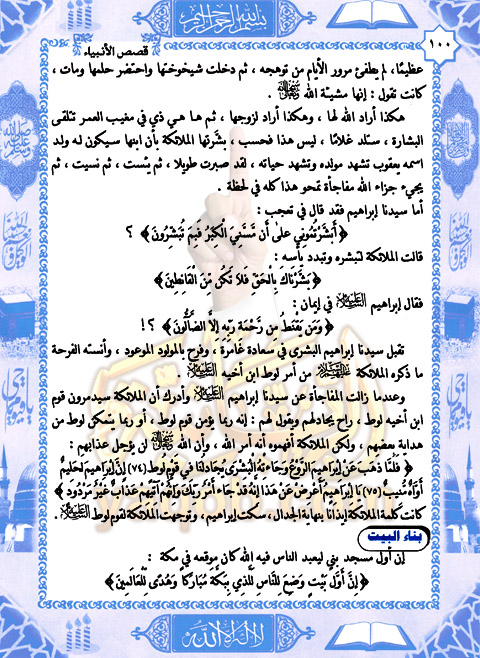 بسم الله الرحمن الرحيم
١٠٠
قصص الأنبياء
عظيمًا، لم يطفئ مرور الأيام من توهجه، ثم دخلت شيخوختها واحتضر حلمها ومات،
كانت تقول: إنها مشيئة الله
هكذا أراد الله لها، وهكذا أراد لزوجها، ثم ها هي ذي في مغيب العمر تتلقى
البشارة، ستلد غلامًا، ليس هذا فحسب، بشَّرتها الملائكة بأن ابنها سيكون له ولد
اسمه يعقوب تشهد مولده وتشهد حياته، لقد صبرت طويلا، ثم يئست، ثم نسيت، ثم
يجيء جزاء الله مفاجأة تمحو هذا كله في لحظة.
أما سيدنا إبراهيم فقد قال في تعجب:
﴿أَبَشَّرْتُمُونِي عَلَىٰ أَن مَّسَّنِيَ الْكِبَرُ فَبِمَ تُبَشِّرُونَ﴾ ؟
قالت الملائكة لتبشره وتبدد يأسه:
﴿بَشَّرْنَاكَ بِالْحَقِّ فَلَا تَكُن مِّنَ الْقَانِطِينَ﴾
فقال إبراهيم عليه السلام في إيمان:
﴿وَمَن يَقْنَطُ مِن رَّحْمَةِ رَبِّهِ إِلَّا الضَّالُّونَ﴾ ؟!
تقبل سيدنا إبراهيم البشرى في سعادة غامرة، وفرح بالمولود الموعود، وأنسته الفرحة
ما ذكره الملائكة عليهم السلام من أمر لوط ابن أخيه.
وعندما زالت المفاجأة عن سيدنا إبراهيم عليه السلام وأدرك أن الملائكة سيدمرون قوم
ابن أخيه لوط، راح يجادلهم ويقول لهم: إنه ربما يؤمن قوم لوط، أو ربما يتمكن لوط من
هداية بعضهم، ولكن الملائكة أفهموه أنه أمر الله، وأن الله لن يؤجل عذابهم:
﴿فَلَمَّا ذَهَبَ عَنْ إِبْرَاهِيمَ الرَّوْعُ وَجَاءَتْهُ الْبُشْرَىٰ يُجَادِلُنَا فِي قَوْمِ لُوطٍ (٧٤) إِنَّ إِبْرَاهِيمَ لَحَلِيمٌ
أَوَّاهٌ مُّنِيبٌ (٧٥) يَا إِبْرَاهِيمُ أَعْرِضْ عَنْ هَٰذَا إِنَّهُ قَدْ جَاءَ أَمْرُ رَبِّكَ وَإِنَّهُمْ آتِيهِمْ عَذَابٌ غَيْرُ مَرْدُودٍ﴾
كانت كلمة الملائكة إيذانًا بنهاية الجدال، سكت إبراهيم، وتوجهت الملائكة لقوم لوط عليه السلام.
بناء البيت
إن أول مسجد بني ليعبد الناس فيه الله كان موقعه في مكة:
﴿إِنَّ أَوَّلَ بَيْتٍ وُضِعَ لِلنَّاسِ لَلَّذِي بِبَكَّةَ مُبَارَكًا وَهُدًى لِّلْعَالَمِينَ﴾
لا إله إلا الله